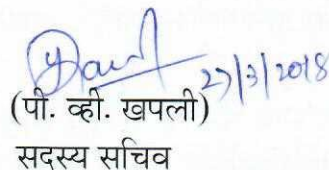 27/3/2018
(पी. व्ही. खपली)
सदस्य सचिव